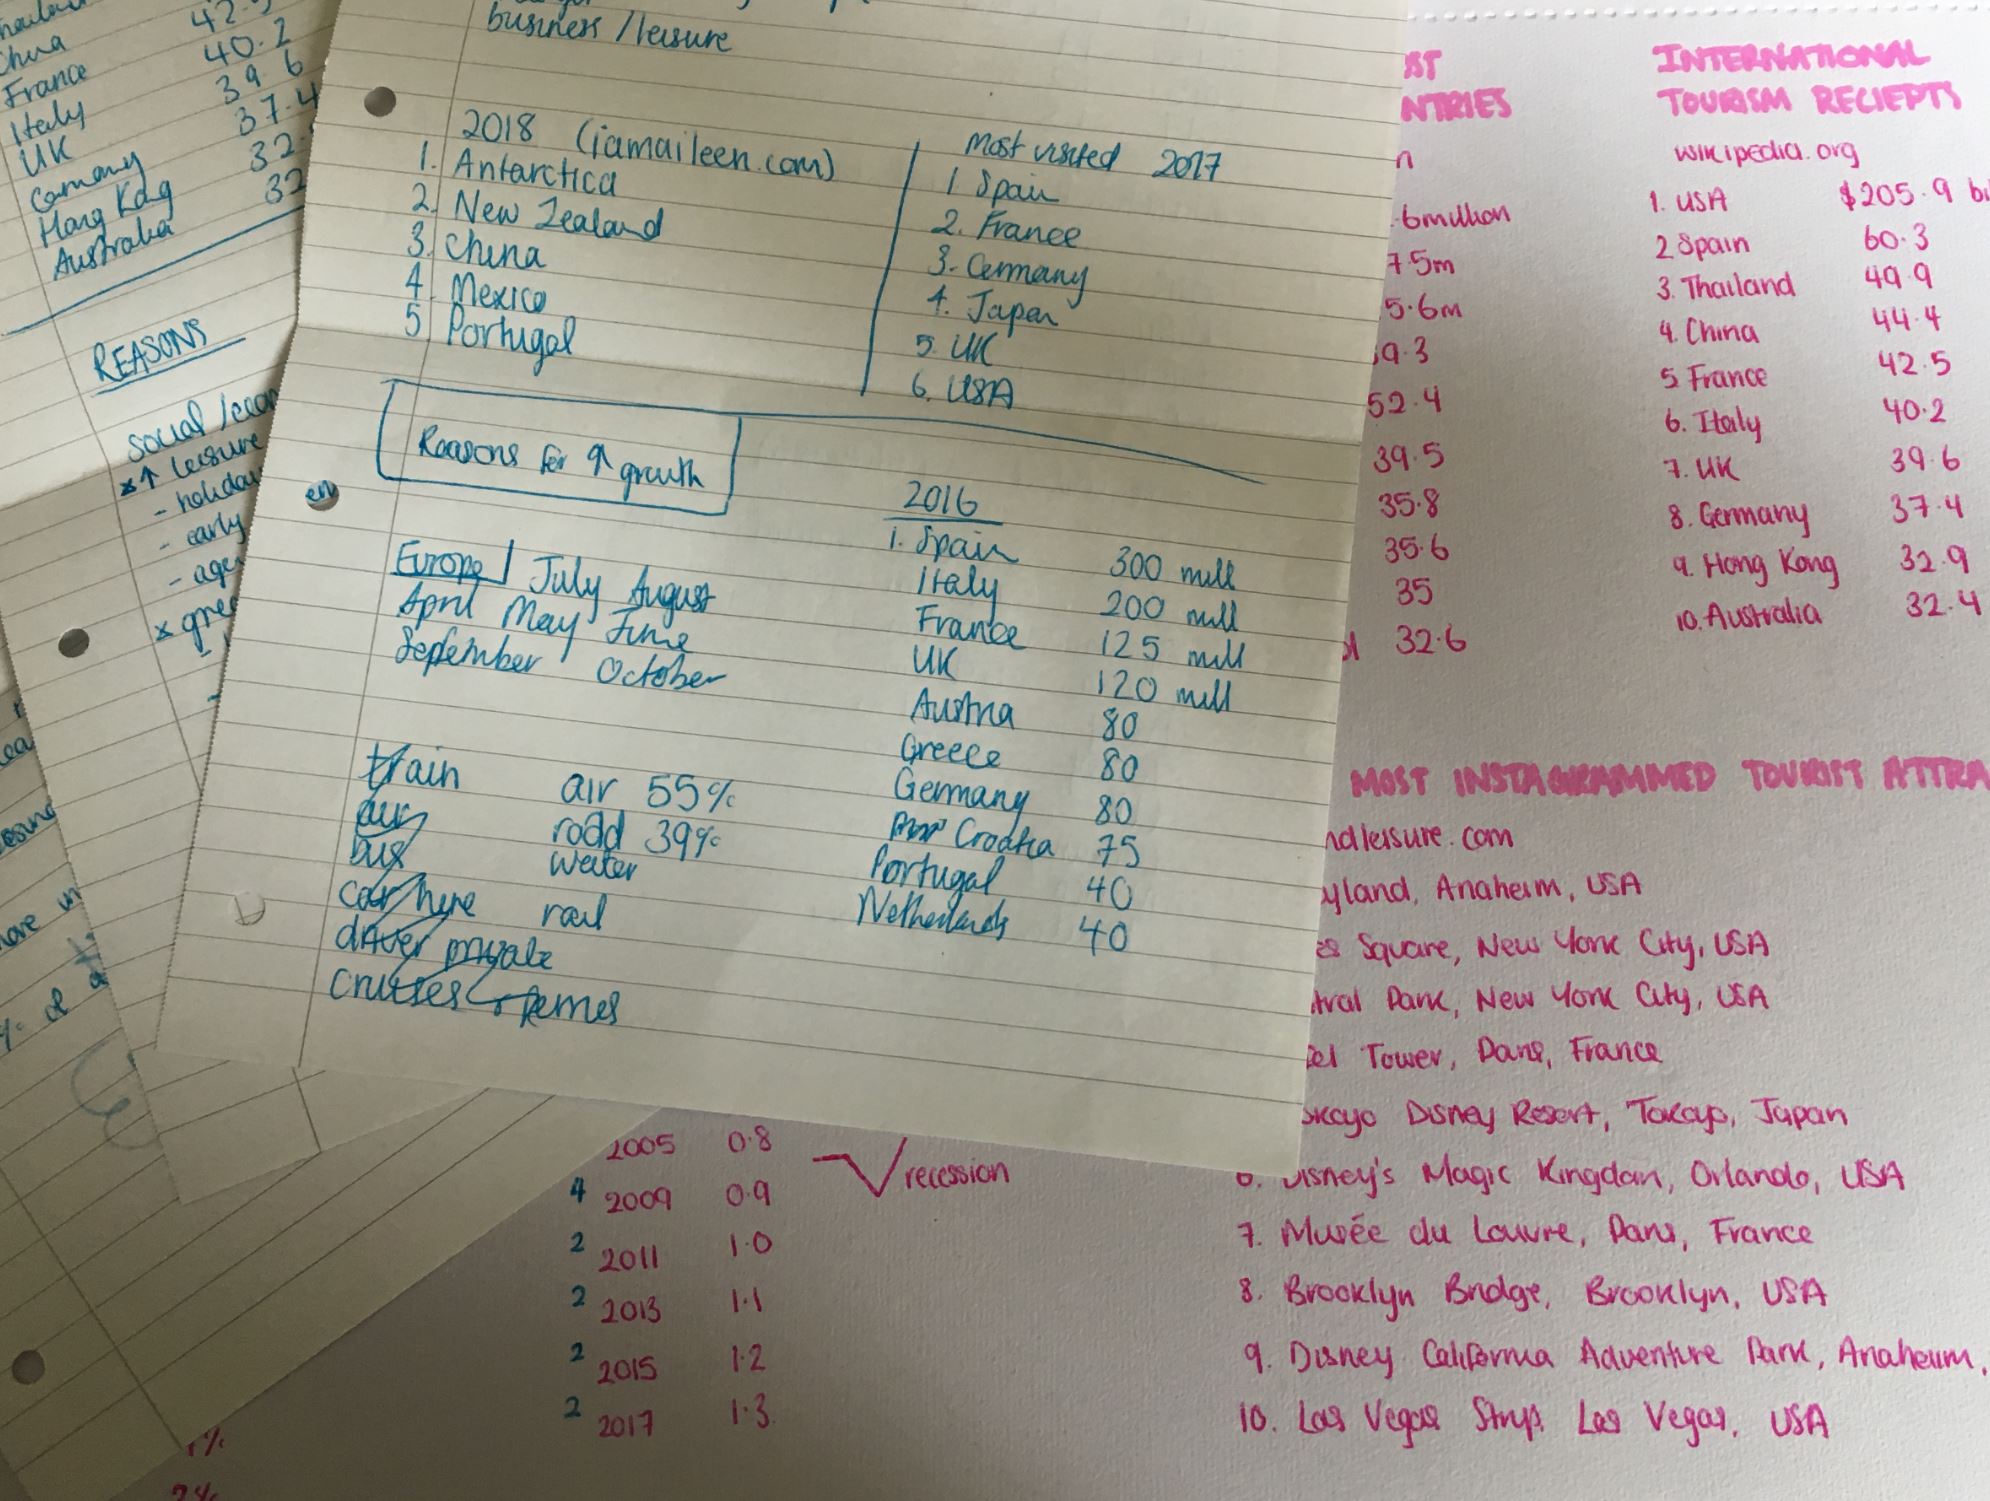 China
France 40.2
Italy 39.6
UK 37.4
Germany
Hong Kong 32
Australia
REASONS
↑ leisure
- early
business / leisure
2018 (iamaileen.com)
1. Antarctica
2. New Zealand
3. China
4. Mexico
5 Portugal
Most visited 2017
1 Spain
2. France
3. Germany
4. Japan
5. UK
6. USA
Reasons for ↑ growth
Europe July August
April May June
September October
2016
1. Spain 300 mill
Italy 200 mill
France 125 mill
UK 120 mill
Austria 80
Greece 80
Germany 80
Croatia 75
Portugal 40
Netherlands 40
train
air
bus
car hire
driver private
cruises
air 55%
road 39%
water
rail
NTRIES
.6million
7.5m
5.6m
9.3
52.4
39.5
35.8
35.6
35
32.6
INTERNATIONAL
TOURISM RECIEPTS
wikipedia.org
1. USA $205.9 bi
2 Spain 60.3
3. Thailand 49.9
4. China 44.4
5 France 42.5
6. Italy 40.2
7. UK 39.6
8. Germany 37.4
9. Hong Kong 32.9
10. Australia 32.4
MOST INSTAGRAMMED TOURIST ATTRA
ndleisure.com
yland, Anaheim, USA
es Square, New York City, USA
tral Park, New York City, USA
el Tower, Paris, France
okoyo Disney Resort, Tokoyo, Japan
6. Disney's Magic Kingdom, Orlando, USA
7. Musée du Louvre, Paris, France
8. Brooklyn Bridge, Brooklyn, USA
9. Disney California Adventure Park, Anaheim,
10. Las Vegas Strip, Las Vegas, USA
2005 0.8
recession
4 2009 0.9
2 2011 1.0
2 2013 1.1
2 2015 1.2
2 2017 1.3